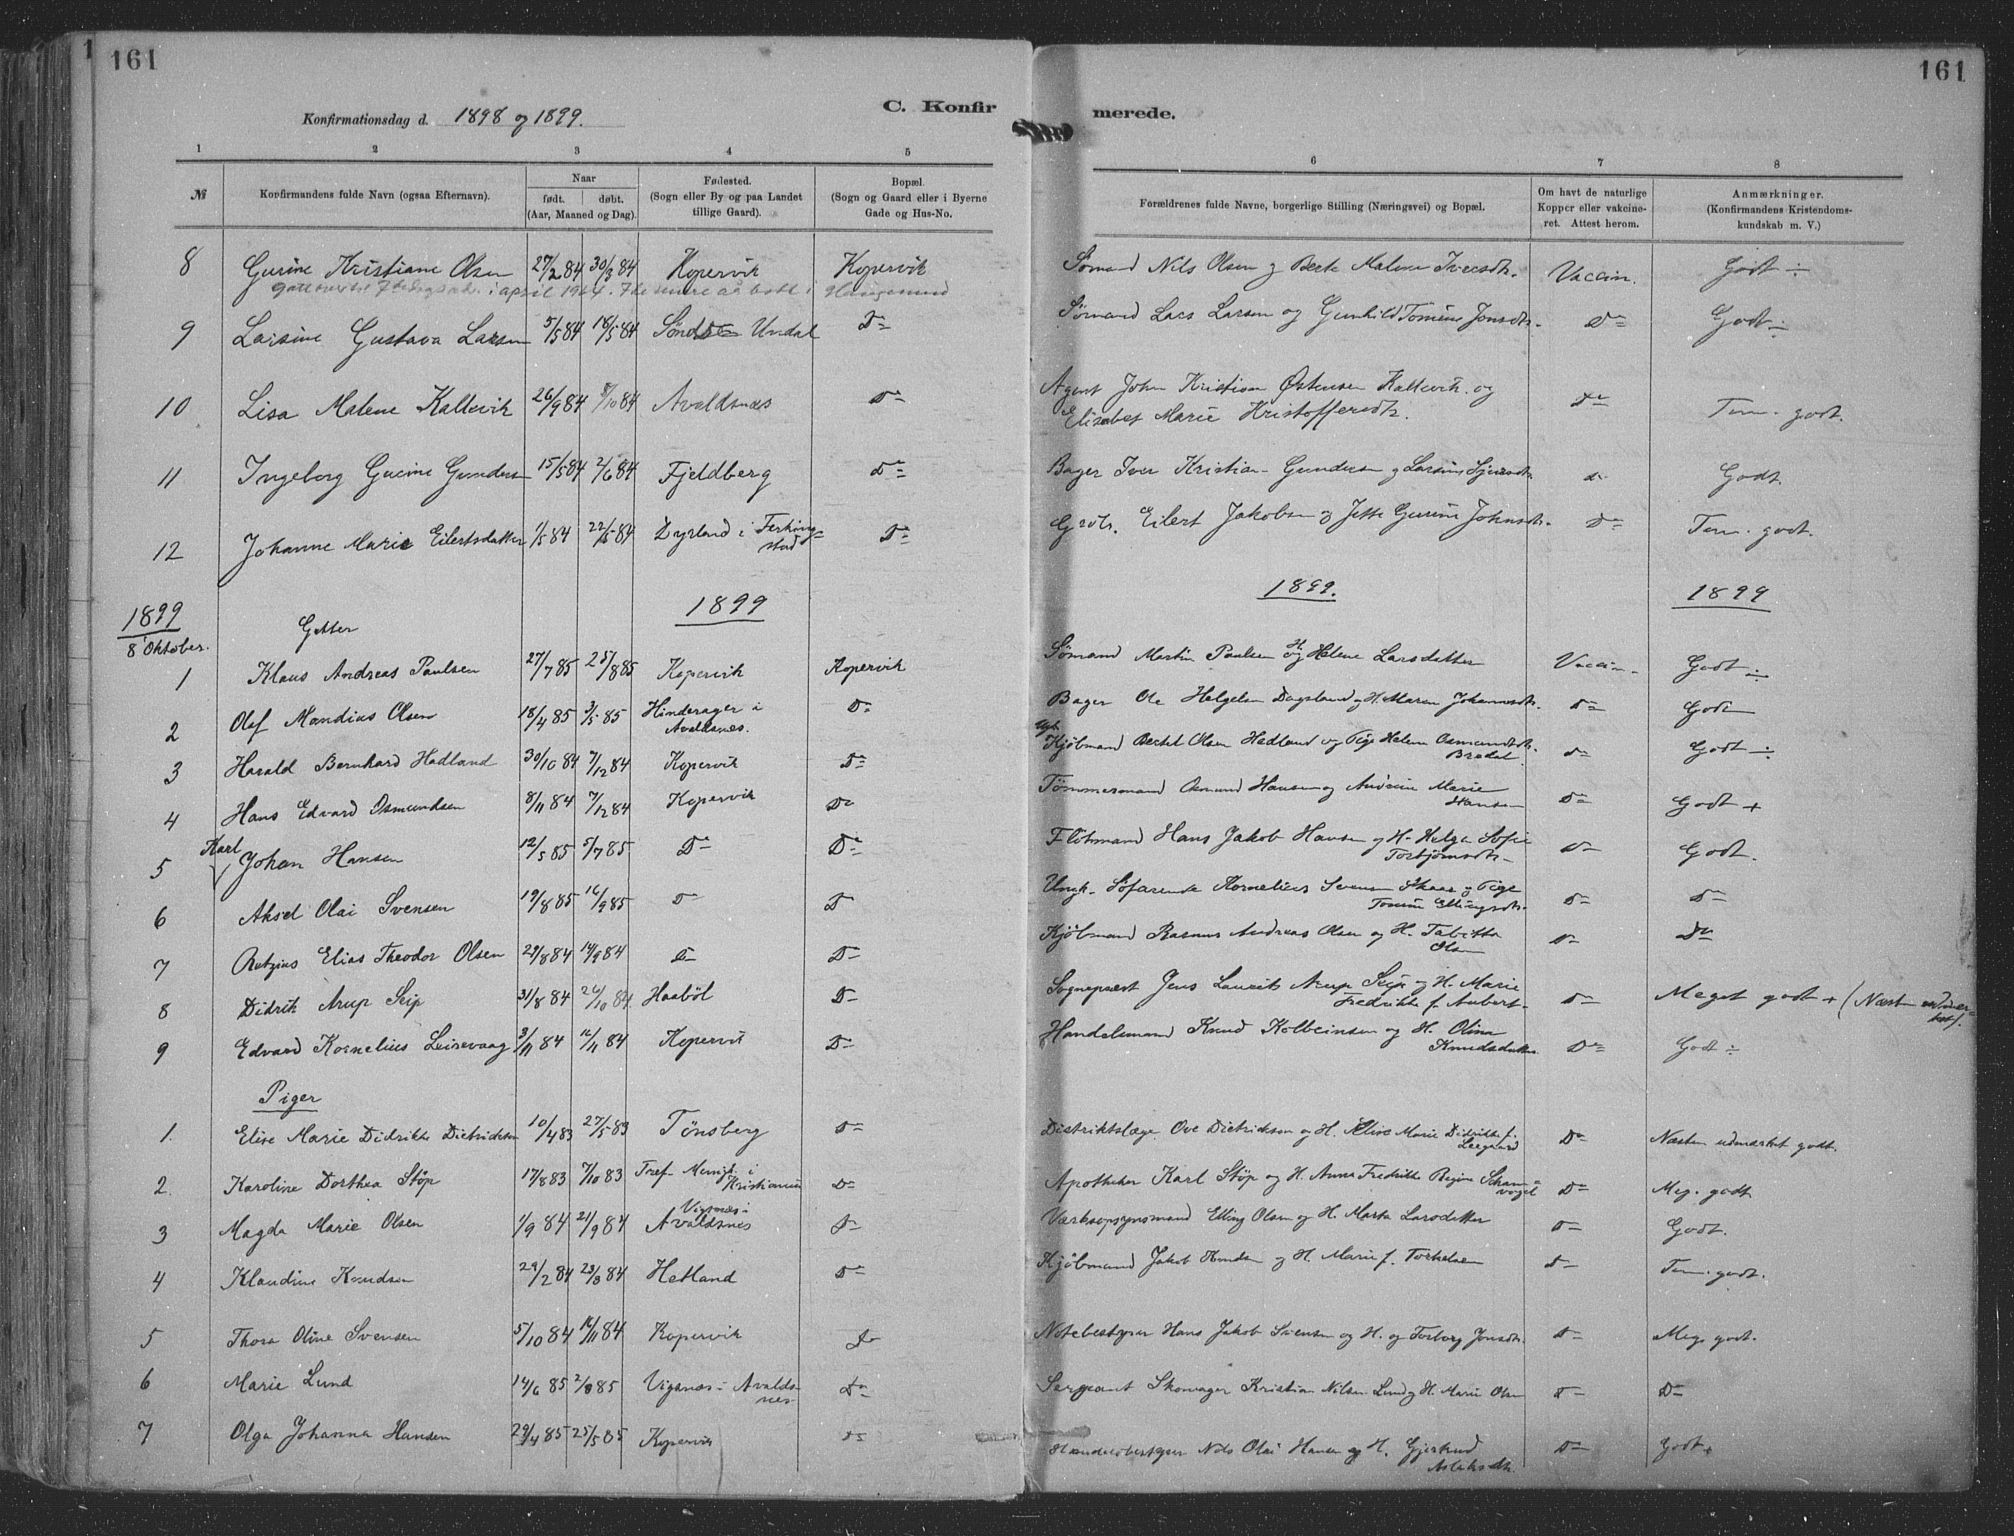 161
161
Konfirmationsdag d. 1898 og 1899.
C. Konfir
merede.
1 2 3 4 5 6 7 8
№ Konfirmandens fulde Navn (ogsaa Efternavn). Naar født. døbt. (Aar, Maaned og Dag). Fødested. (Sogn eller By og paa Landet tillige Gaard). Bopæl. (Sogn og Gaard eller i Byerne Gade og Hus-No. Forældrenes fulde Navne, borgerlige Stilling (Næringsvei) og Bopæl. Om havt de naturlige Kopper eller vakcineret. Attest herom. Anmærkninger. (Konfirmandens Kristendomskundskab m. V.)
8 Gurine Kristiane Olsen 27/2 84 30/3 84 Kopervik Kopervik Sømand Nils Olsen og Berte Malene Iversdtr. Vaccin. Godt ÷
i april 1964.
9 Larsine Gustava Larsen 5/5 84 18/5 84 Søndre Undal Do Sømand Lars Larsen og Gunhild Tomine Jonsdtr. Do Godt ÷
10 Lisa Malene Kallevik 26/9 84 /10 84 Avaldsnæs Do Agent John Kristian Østensen Kallevik og
Elisabet Marie Kristoffersdtr. Do Tem. godt.
11 Ingeborg Gurine Gundersen 15/5 84 2/6 84 Fjeldberg Do Bager Iver Kristian Gundersen og Larsine Do Godt.
12 Johanne Marie Eilertsdatter 1/5 84 22/5 84 Dyrland i Ferkingstad Do Eilert Jakobsen og Jette Gurine Johnsdtr. Do Tem. godt.
1899 1899 1899. 1899
8 Oktober. Gutter
1 Klaus Andreas Paulsen 27/7 85 25/8 85 Kopervik Kopervik Sømand Martin Paulsen og H. Helene Larsdatter Vaccin. Godt ÷
2 Olaf Mandius Olsen 18/4 85 3/5 85 Hinderager i Avaldsnes. Do Bager Ole Helgesen Dagsland og H. Maren Johannesdtr. Do Godt
3 Harald Bernhard Hadland 30/10 84 7/12 84 Kopervik Do Ugk. Kjøbmand Bertel Olsen Hadland og Pige Helene Osmundsdtr. Bredal. Do Godt ÷
4 Hans Edvard Osmundsen 8/11 84 7/12 84 Kopervik Do Tømmermand Osmund Hansen og Marie Hansen Do Godt +
5 Karl Johan Hansen 12/5 85 5/7 85 Do Do Flotmand Hans Jakob Hansen og H. Helga Sofie Torbjørnsdtr. Do Godt.
6 Aksel Olai Svensen 19/8 85 16/9 85 Do Do Ungk. Søfarende Kornelius Svensen Skaar og Pige
Tomine Ellingsdtr. Do Do
7 Retzius Elias Theodor Olsen 29/8 84 14/9 84 Do Do Kjøbmand Rasmus Andreas Olsen og H. Tabitta Olsen Do Do
8 Didrik Arup Seip 31/8 84 26/10 84 Haabøl Do Sogneprest Jens Laurits Arup Seip og H. Marie
Fredrikke f. Aubert Do Meget godt + (Næsten udmærket).
9 Edvard Kornelius Leirevaag 3/11 84 16/11 84 Kopervik Do Handelsmand Knud Kolbeinsen og H. Olina
Knudsdatter. Do Godt ÷
Piger
1. Elise Marie Didrikke Dietrichson 10/4 83 27/5 83 Tønsberg Do Distriktslæge Ove Dietrichson og H. Elise Marie Didrikke f.
Leegaard Do Næsten udmærket godt.
2. Karoline Dorthea Støp 17/8 83 7/10 83 Tref. Menigh. i Kristiania Do Apotheker Karl Støp og H. Anna Fredrikke Regine Do Meg. godt
3 Magda Marie Olsen 1/9 84 21/9 84 Vigsnæs i Avaldsnes Do Værksopsynsmand Elling Olsen og H. Marta Larsdatter Do Godt.
4 Klaudine Knudsen 29/2 84 23/3 84 Hetland Do Kjøbmand Jakob Knudsen og H. Marie f. Torkelsen Do Tem. godt.
5 Thora Oline Svensen 5/10 84 16/11 84 Kopervik Do Notebestyrer Hans Jakob Svensen og H. og Torborg Jonsdtr. Do Meg. godt.
6 Marie Lund 14/6 85 2/8 85 Vigsnæs i Avaldsnes Do Sergeant Skomager Kristian Nilsen Lund og H. Marie Olsen Do Do
7 Olga Johanna Hansen 29/4 85 25/5 85 Kopervik Do Handelsbestyrer Nils Olai Hansen og H. Gjertrud
Aslaksdtr. Do Godt +